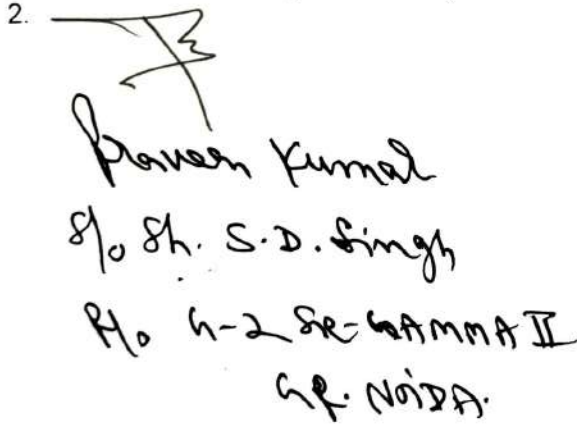 2.
Praveen Kumar
S/o Sh. S.D. Singh
R/o G-2 Se-GAMMA II
GR. NOIDA.